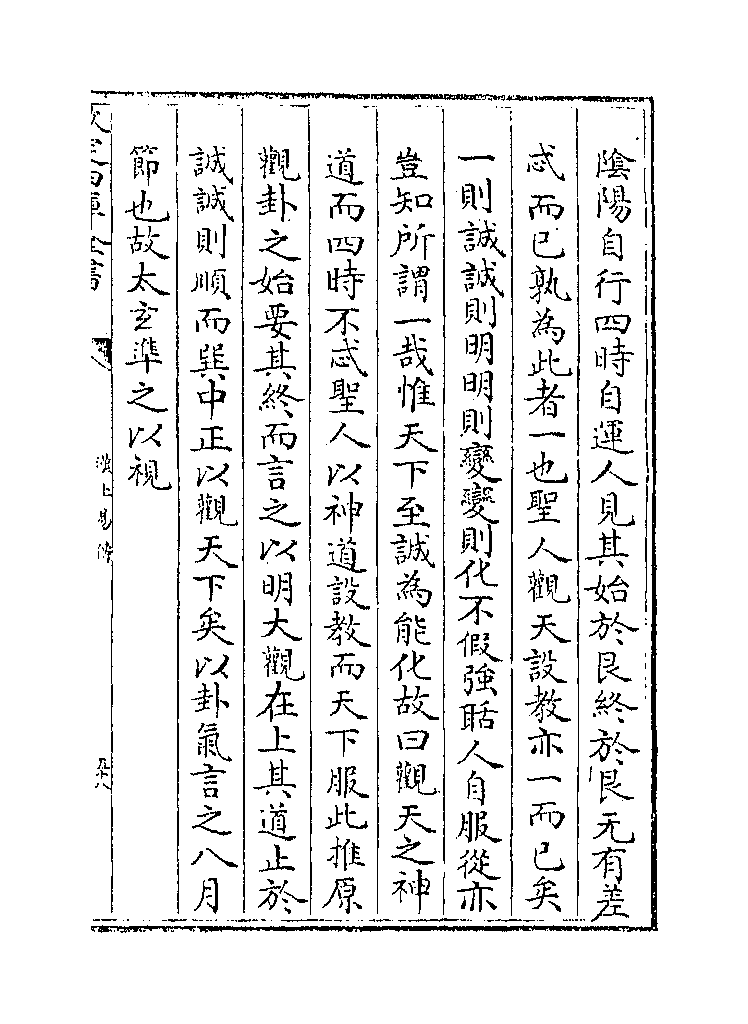 陰陽自行四時自運人見其始於艮終於艮无有差
忒而已孰為此者一也聖人觀天設教亦一而已矣
一則誠誠則明明則變變則化不假強聒人自服從亦
豈知所謂一哉惟天下至誠為能化故曰觀天之神
道而四時不忒聖人以神道設教而天下服此推原
觀卦之始要其終而言之以明大觀在上其道止於
誠誠則順而巽中正以觀天下矣以卦氣言之八月
節也故太玄準之以視